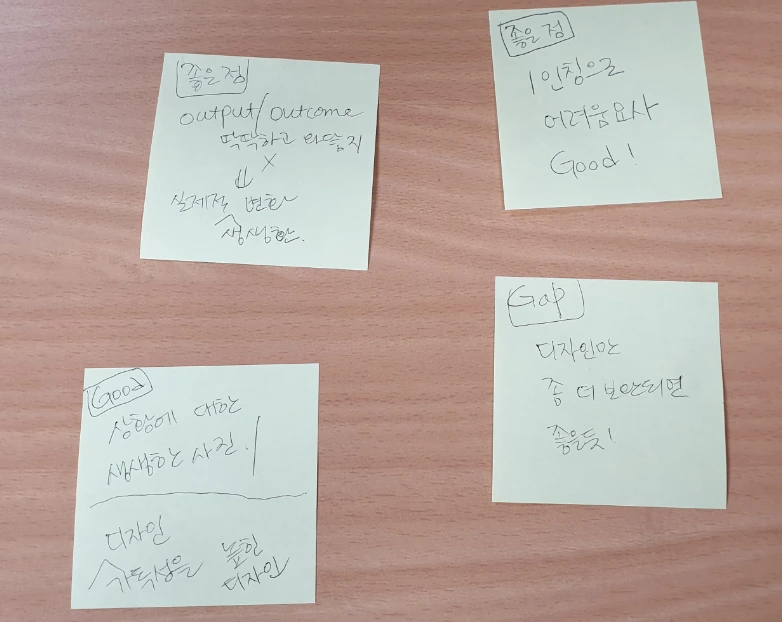 좋은 점
output/outcome
딱딱하고 와닿지
X
⇓
실제적 변화
생생한.
좋은 점
1인칭으로
어려움 묘사
Good!
Good
상황에 대한
생생한 사진.
디자인
가독성을 높힌
디자인
Gap
디자인만
좀 더 보완되면
좋을듯!